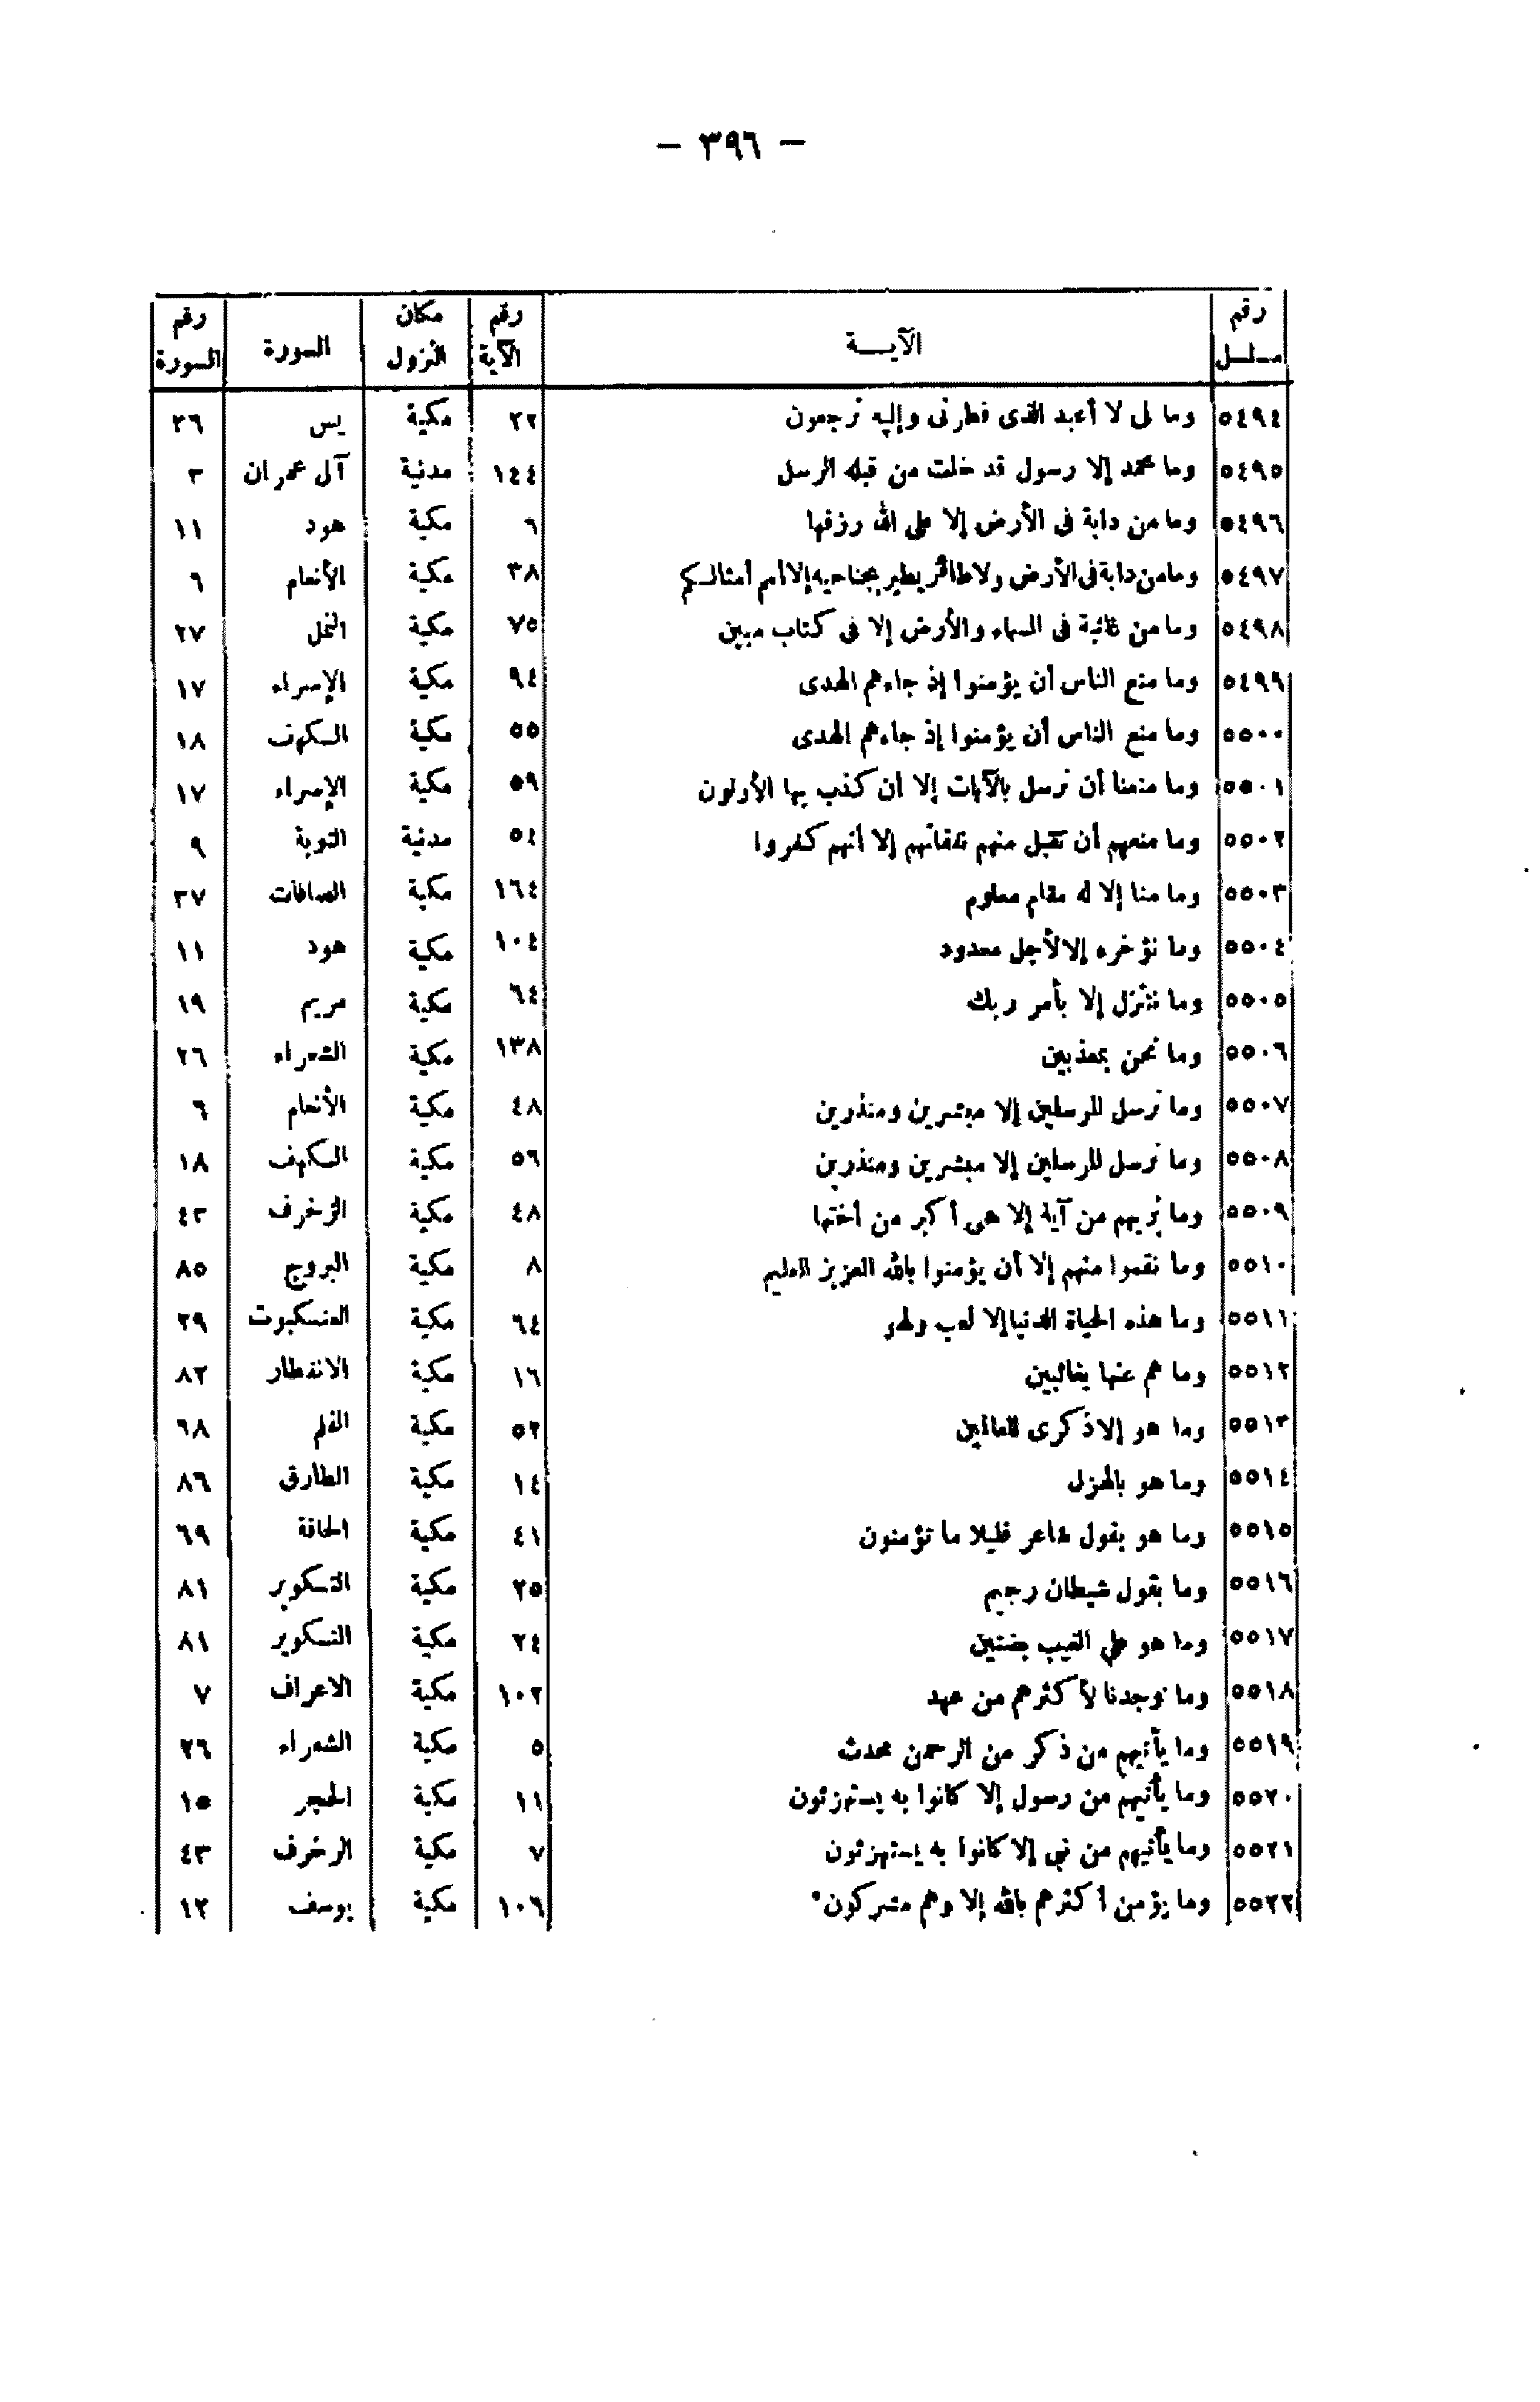 — ٣٩٦ —
رقم مسلسل | الآيــة | رقم الآية | مكان النزول | السورة | رقم السورة
٥٤٩٤ | وما لى لا أعبد الذى فطرنى وإليه ترجعون | ٢٢ | مكية | يس | ٣٦
٥٤٩٥ | وما محمد إلا رسول قد خلت من قبله الرسل | ١٤٤ | مدنية | آل عمران | ٣
٥٤٩٦ | وما من دابة فى الأرض إلا على الله رزقها | ٦ | مكية | هود | ١١
٥٤٩٧ | وما من دابة فى الأرض ولا طائر يطير بجناحيه إلا أمم أمثالكم | ٣٨ | مكية | الأنعام | ٦
٥٤٩٨ | وما من غائبة فى السماء والأرض إلا فى كتاب مبين | ٧٥ | مكية | النمل | ٢٧
٥٤٩٩ | وما منع الناس أن يؤمنوا إذ جاءهم الهدى | ٩٤ | مكية | الإسراء | ١٧
٥٥٠٠ | وما منع الناس أن يؤمنوا إذ جاءهم الهدى | ٥٥ | مكية | الكهف | ١٨
٥٥٠١ | وما منعنا أن نرسل بالآيات إلا ان كذب بها الأولون | ٥٩ | مكية | الإسراء | ١٧
٥٥٠٢ | وما منعهم أن تقبل منهم نفقاتهم إلا أنهم كفروا | ٥٤ | مدنية | التوبة | ٩
٥٥٠٣ | وما منا إلا له مقام معلوم | ١٦٤ | مكية | الصافات | ٣٧
٥٥٠٤ | وما نؤخره إلا لأجل معدود | ١٠٤ | مكية | هود | ١١
٥٥٠٥ | وما نتنزل إلا بأمر ربك | ٦٤ | مكية | مريم | ١٩
٥٥٠٦ | وما نحن بمعذبين | ١٣٨ | مكية | الشعراء | ٢٦
٥٥٠٧ | وما نرسل المرسلين إلا مبشرين ومنذرين | ٤٨ | مكية | الأنعام | ٦
٥٥٠٨ | وما نرسل المرسلين إلا مبشرين ومنذرين | ٥٦ | مكية | الكهف | ١٨
٥٥٠٩ | وما نريهم من آية إلا هى أكبر من أختها | ٤٨ | مكية | الزخرف | ٤٣
٥٥١٠ | وما نقموا منهم إلا أن يؤمنوا بالله العزيز العليم | ٨ | مكية | البروج | ٨٥
٥٥١١ | وما هذه الحياة الدنيا إلا لعب ولهو | ٦٤ | مكية | العنكبوت | ٢٩
٥٥١٢ | وما هم عنها بغائبين | ١٦ | مكية | الانفطار | ٨٢
٥٥١٣ | وما هو إلا ذكرى للعالمين | ٥٢ | مكية | القلم | ٦٨
٥٥١٤ | وما هو بالهزل | ١٤ | مكية | الطارق | ٨٦
٥٥١٥ | وما هو بقول شاعر قليلا ما تؤمنون | ٤١ | مكية | الحاقة | ٦٩
٥٥١٦ | وما بقول شيطان رجيم | ٢٥ | مكية | التكوير | ٨١
٥٥١٧ | وما هو على الغيب بضنين | ٢٤ | مكية | التكوير | ٨١
٥٥١٨ | وما وجدنا لأكثرهم من عهد | ١٠٢ | مكية | الاعراف | ٧
٥٥١٩ | وما يأتيهم من ذكر من الرحمن محدث | ٥ | مكية | الشعراء | ٢٦
٥٥٢٠ | وما يأتيهم من رسول إلا كانوا به يستهزئون | ١١ | مكية | الحجر | ١٥
٥٥٢١ | وما يأتيهم من نبى إلا كانوا به يستهزئون | ٧ | مكية | الزخرف | ٤٣
٥٥٢٢ | وما يؤمن أكثرهم بالله إلا وهم مشركون | ١٠٦ | مكية | يوسف | ١٢